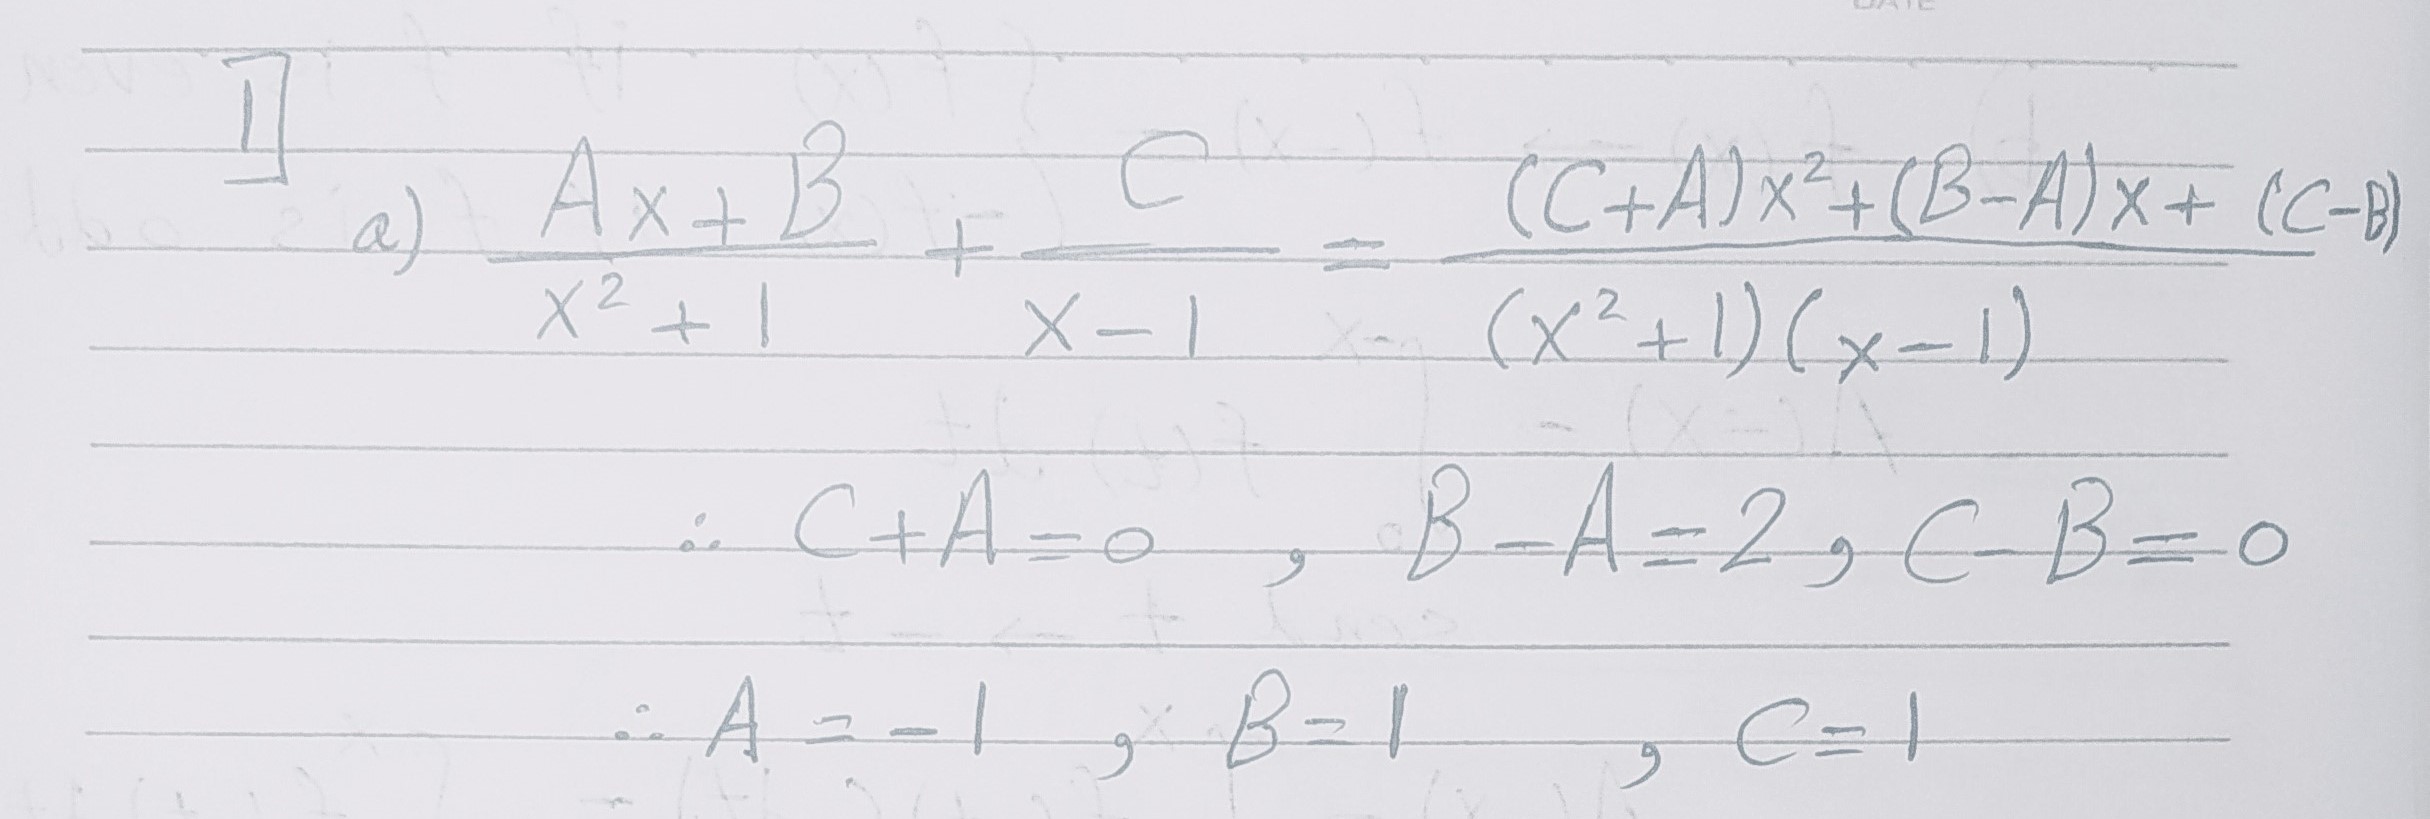 DATE
1]
a) (Ax + B)/(x² + 1) + C/(x - 1) = ((C+A)x² + (B-A)x + (C-B))/((x² + 1)(x - 1))
∴ C + A = 0 , B - A = 2 , C - B = 0
∴ A = -1 , B = 1 , C = 1